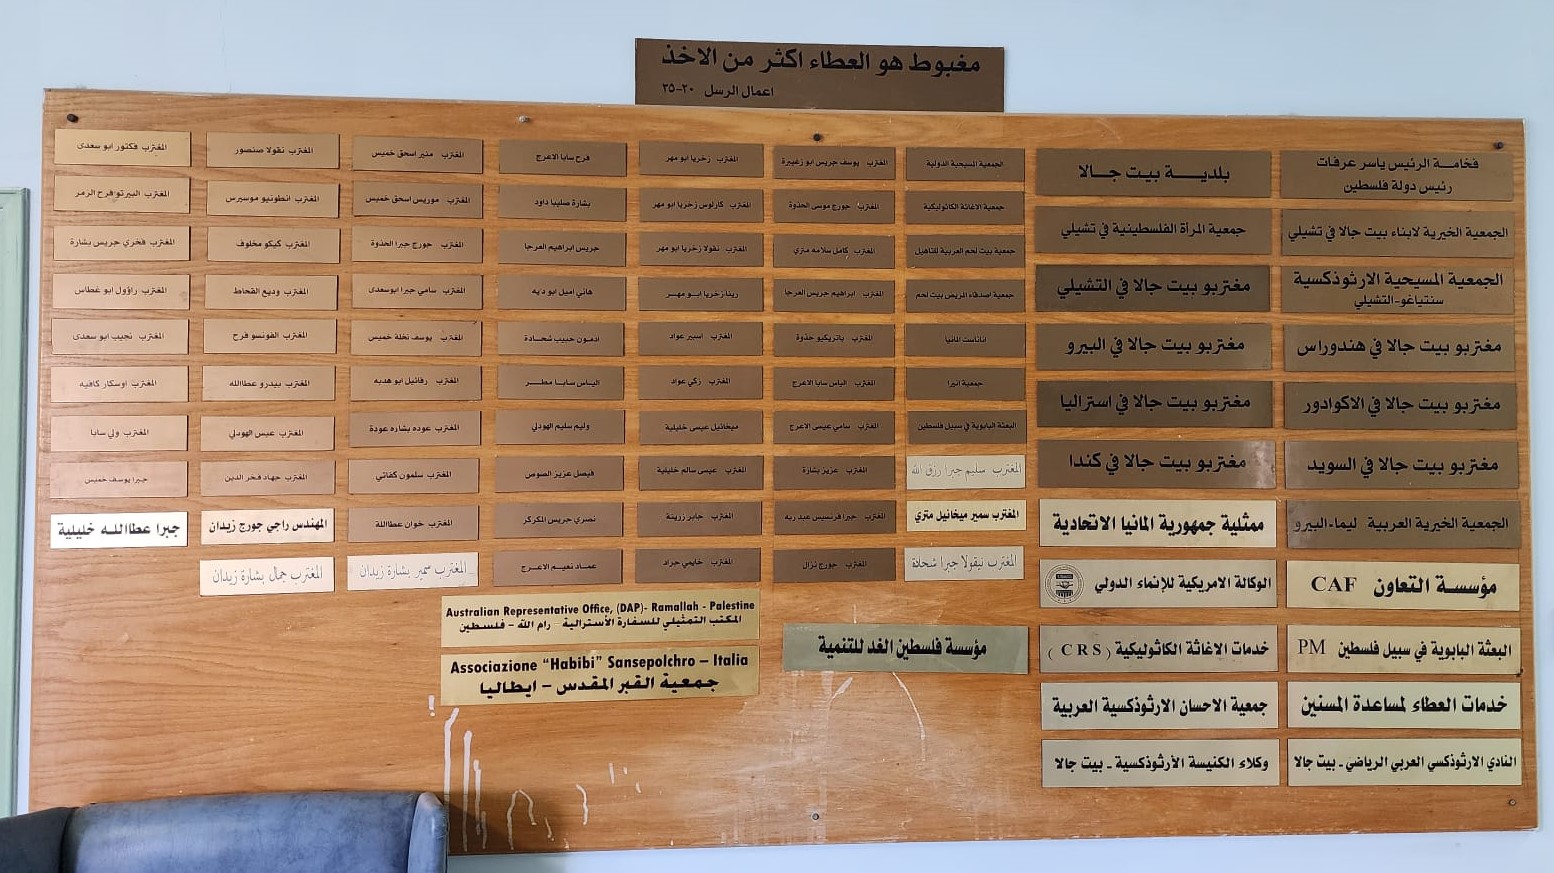 مغبوط هو العطاء اكثر من الاخذ
اعمال الرسل ٢٠-٣٥
فخامة الرئيس ياسر عرفات
رئيس دولة فلسطين
بلدية بيت جالا
الجمعية الخيرية لابناء بيت جالا في تشيلي
جمعية المرأة الفلسطينية في تشيلي
الجمعية المسيحية الارثوذكسية
سنتياغو-التشيلي
مغتربو بيت جالا في التشيلي
مغتربو بيت جالا في هندوراس
مغتربو بيت جالا في البيرو
مغتربو بيت جالا في الاكوادور
مغتربو بيت جالا في استراليا
مغتربو بيت جالا في السويد
مغتربو بيت جالا في كندا
الجمعية الخيرية العربية ليما-البيرو
ممثلية جمهورية المانيا الاتحادية
مؤسسة التعاون CAF
الوكالة الامريكية للإنماء الدولي
البعثة البابوية في سبيل فلسطين PM
خدمات الاغاثة الكاثوليكية (CRS)
خدمات العطاء لمساعدة المسنين
جمعية الاحسان الارثوذكسية العربية
النادي الارثوذكسي العربي الرياضي - بيت جالا
وكلاء الكنيسة الأرثوذكسية - بيت جالا
الجمعية المسيحية الدولية
جمعية الاغاثة الكاثوليكية
جمعية بيت لحم العربية للتاهيل
جمعية اصدقاء المريض بيت لحم
اناناست المانيا
جمعية انيرا
البعثة البابوية في سبيل فلسطين
المغترب سليم جبرا رزق الله
المغترب سمير ميخائيل متري
المغترب نيقولا جبرا شحادة
المغترب يوسف جريس ابو زغيبرة
المغترب جورج موسى الحذوة
المغترب كامل سلامه متري
المغترب ابراهيم جريس العرجا
المغترب باتريكيو حذوة
المغترب الياس سابا الاعرج
المغترب سامي عيسى الاعرج
المغترب عزيز بشارة
المغترب جبرا فرنسيس عبد ربه
المغترب جورج نزال
المغترب زخريا ابو مهر
المغترب كارلوس زخريا ابو مهر
المغترب نقولا زخريا ابو مهر
رينا زخريا ابو مهر
المغترب اسبير عواد
المغترب زكي عواد
ميخائيل عيسى خليلية
المغترب عيسى سالم خليلية
المغترب جابر زرينة
المغترب خايمي جراد
فرح سابا الاعرج
بشارة صليبا داود
جريس ابراهيم العرجا
هاني اميل ابو دايه
ادمون حبيب شحادة
الياس سابا مطر
وليم سليم الهودلي
فيصل عزيز الصوص
نصري جريس المكركر
عماد نعيم الاعرج
المغترب منير اسحق خميس
المغترب موريس اسحق خميس
المغترب جورج جبرا الحذوة
المغترب سامي جبرا ابوسعدى
المغترب يوسف نخلة خميس
المغترب رفائيل ابو هدبه
المغترب عوده بشاره عودة
المغترب سلمون كفاتي
المغترب خوان عطاالله
المغترب سمير بشارة زيدان
المغترب نقولا صنصور
المغترب انطونيو موسيرس
المغترب كيكو مخلوف
المغترب وديع القحاط
المغترب الفونسو فرح
المغترب بيدرو عطاالله
المغترب عيس الهودلي
المغترب جهاد فخر الدين
المهندس راجي جورج زيدان
المغترب جمال بشارة زيدان
المغترب فكتور ابو سعدى
المغترب البيرتو فرح الرمر
المغترب فخري جريس بشارة
المغترب راؤول ابو غطاس
المغترب نجيب ابو سعدى
المغترب اوسكار كافيه
المغترب ولي سابا
جبرا يوسف خميس
جبرا عطاالله خليلية
Australian Representative Office, (DAP)- Ramallah - Palestine
المكتب التمثيلي للسفارة الأسترالية - رام الله - فلسطين
Associazione "Habibi" Sansepolchro – Italia
جمعية القبر المقدس - ايطاليا
مؤسسة فلسطين الغد للتنمية